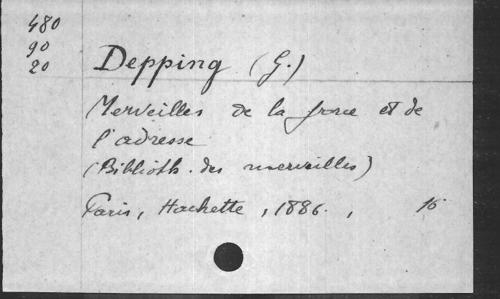 480
90
20
Depping (G.)
Merveilles de la force et de
l'adresse
(Biblioth. des merveilles)
Paris, Hachette, 1886. , 16